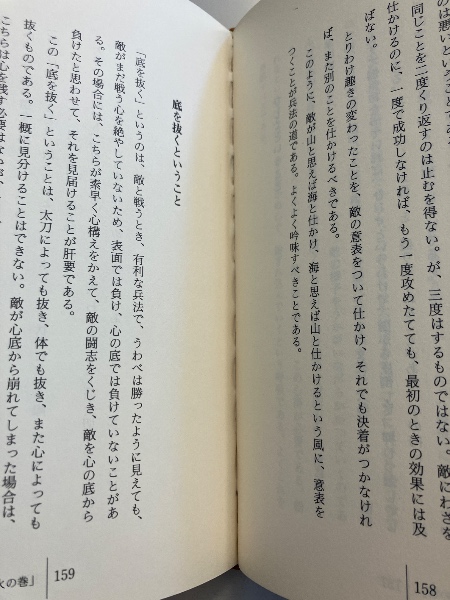 の悪いことである。
同じことを二度くり返すのは止むを得ない。が、三度はするものではない。敵にわざを
仕かけるのに、一度で成功しなければ、もう一度攻めたてても、最初のときの効果には及
ばない。
とりわけ趣きの変わったことを、敵の意表をついて仕かけ、それでも決着がつかなけれ
ば、また別のことを仕かけるべきである。
このように、敵が山と思えば海と仕かけ、海と思えば山と仕かけるという風に、意表を
つくことが兵法の道である。よくよく吟味すべきことである。
158
底を抜くということ
「底を抜く」というのは、敵と戦うとき、有利な兵法で、うわべは勝ったように見えても、
敵がまだ戦う心を絶やしていないため、表面では負け、心の底では負けていないことがあ
る。その場合には、こちらが素早く心構えをかえて、敵の闘志をくじき、敵を心の底から
負けたと思わせて、それを見届けることが肝要である。
この「底を抜く」ということは、太刀によっても抜き、体でも抜き、また心によっても
抜くものである。一概に見分けることはできない。敵が心底から崩れてしまった場合は、
こちらは心を残す必要はないが、
159
火の巻」